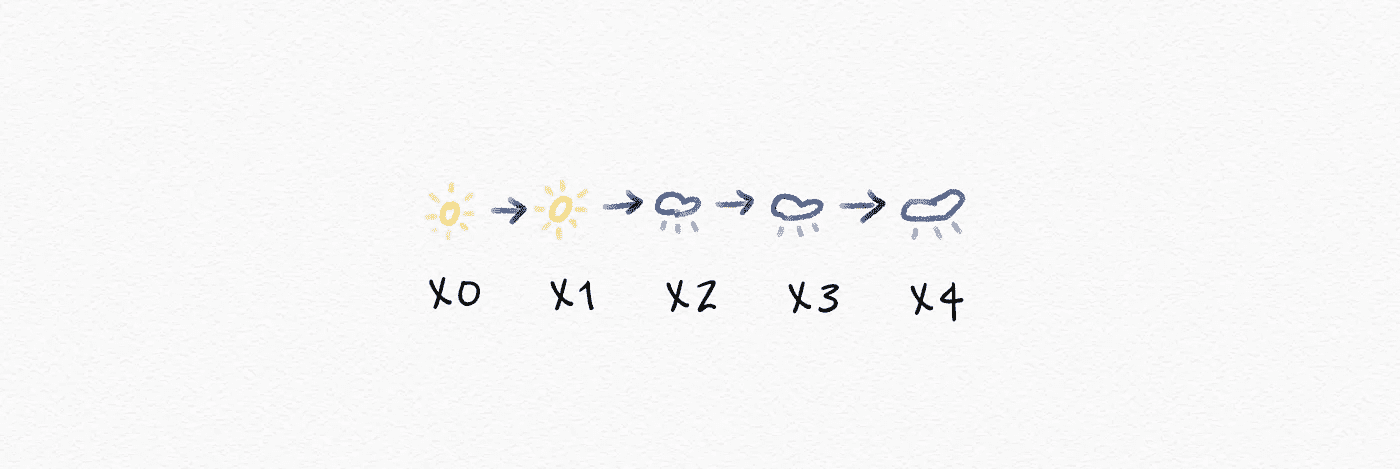 X0 X1 X2 X3 X4